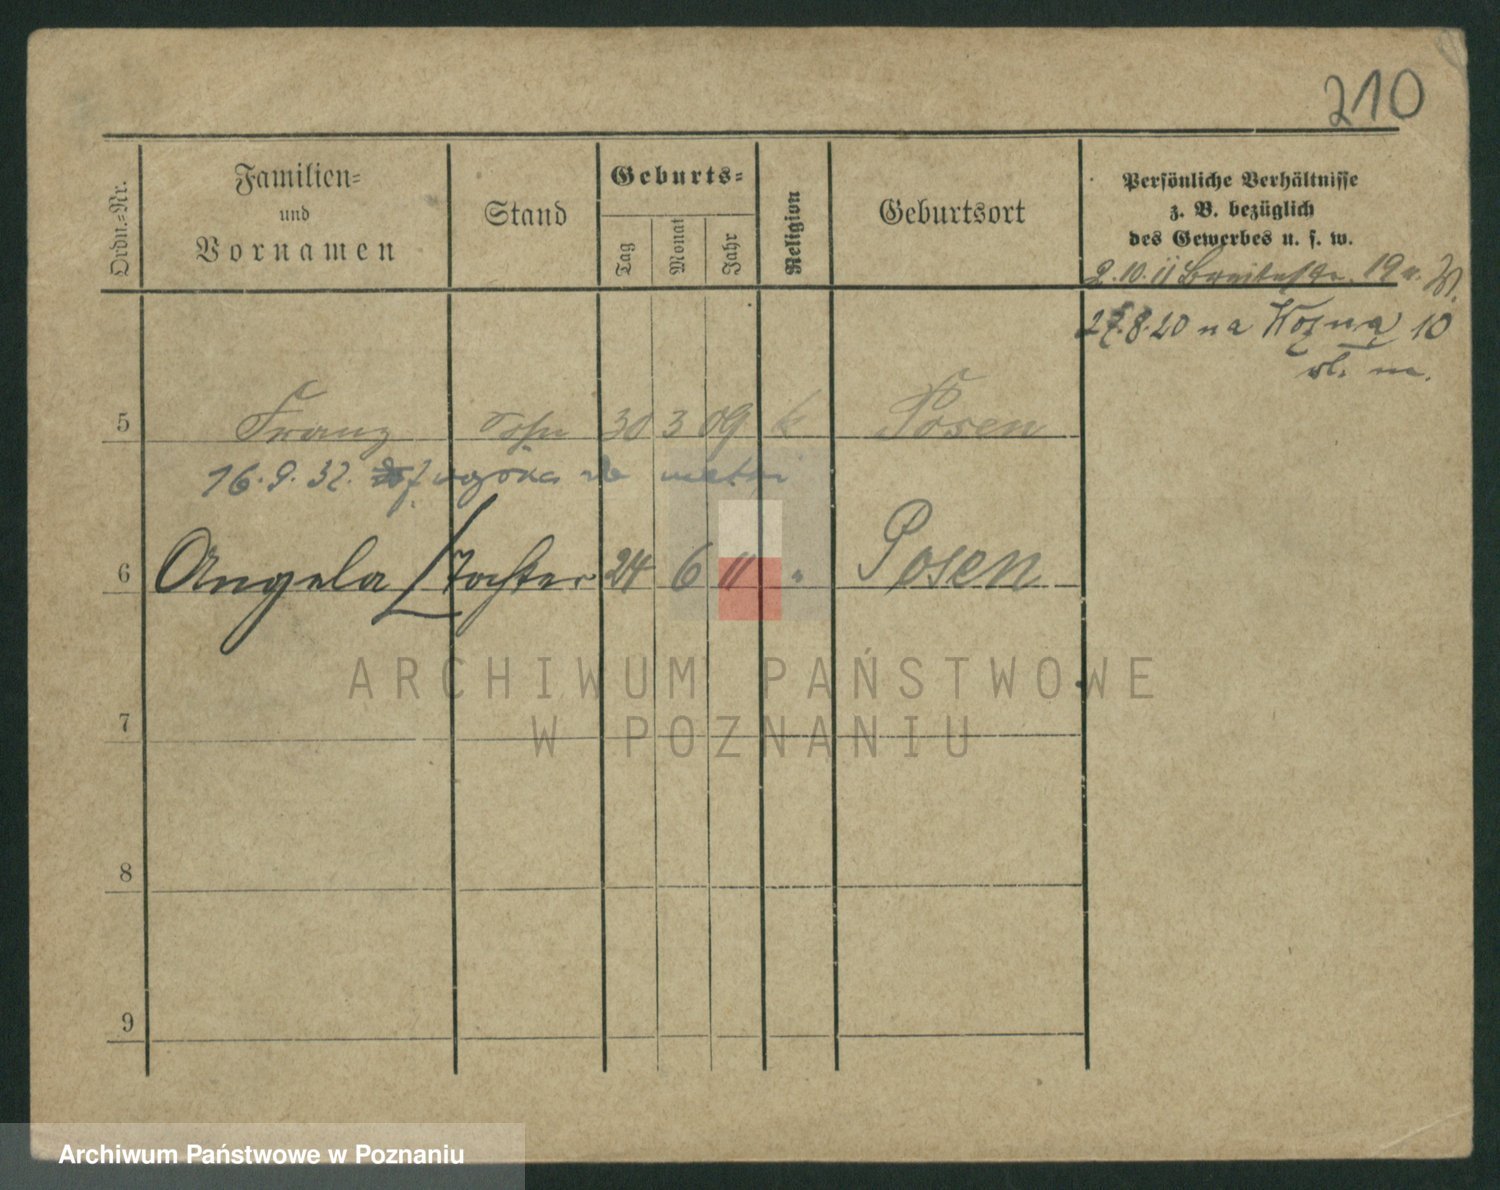 210
Ordn.-Nr.
Familien-
und
Vornamen
Stand
Geburts-
Tag
Monat
Jahr
Religion
Geburtsort
Persönliche Verhältnisse
z. B. bezüglich
des Gewerbes u. s. w.
2.10.11 19
8.20 na Kozną 10
5 Franz Sohn 30 3 09 k Posen
16.9.32.
6 Angela Tochter 24 6 11 " Posen
ARCHIWUM PAŃSTWOWE
W POZNANIU
7
8
9
Archiwum Państwowe w Poznaniu